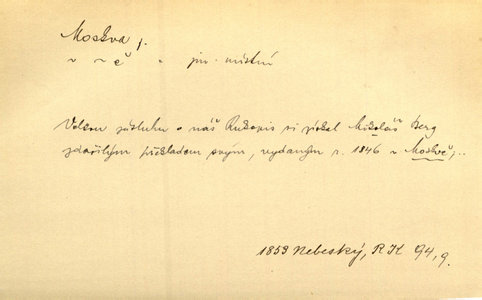 Moskva f.
v -ě jm. místní
Velkou zásluhu o náš Rukopis si získal Mikoláš Berg
zdařilým překladem svým, vydaným r. 1846 v Moskvě;..
1853 Nebeský, RK 94,9.